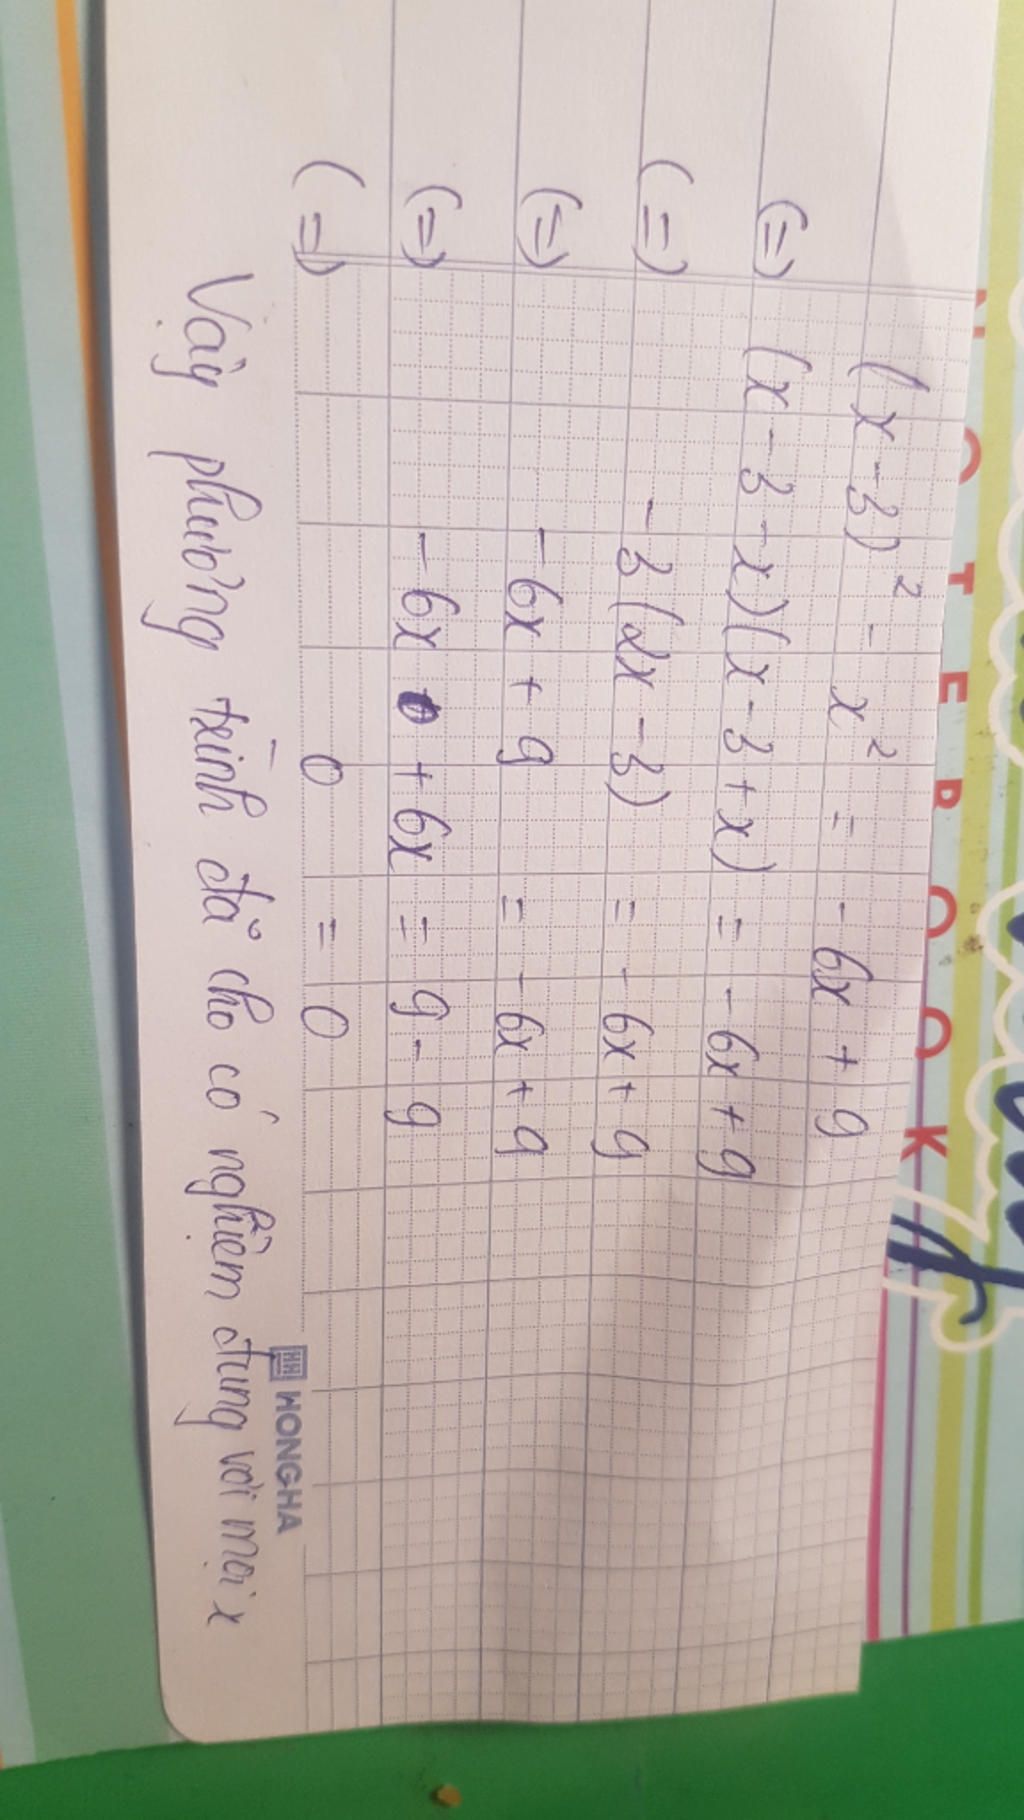 NOTEBOOK
(x - 3)² - x² = - 6x + 9
(=) (x - 3 - x)(x - 3 + x) = - 6x + 9
(=) - 3(2x - 3) = - 6x + 9
(=) - 6x + 9 = - 6x + 9
(=) - 6x + 6x = 9 - 9
(=) 0 = 0
HONG HA
Vậy phương trình đã cho có nghiệm đúng với mọi x